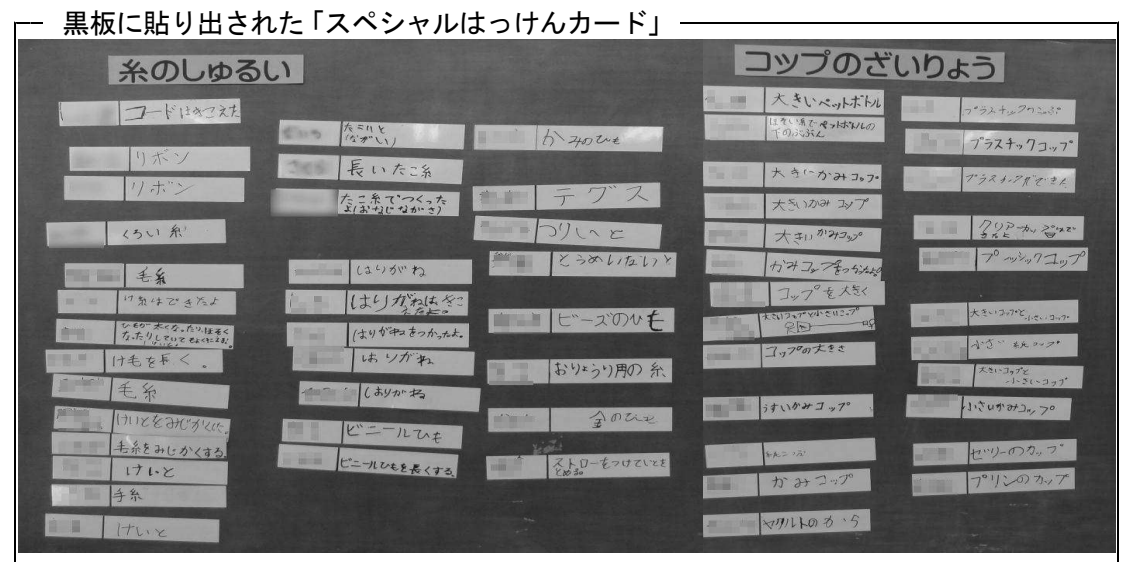 黒板に貼り出された「スペシャルはっけんカード」
糸のしゅるい
コードはきこえた
リボン
リボン
くろい糸
毛糸
け糸はできたよ
ひもが太くなったり、ほそく
なったりしていても
け毛を長く。
毛糸
けいとをみじかくした。
毛糸をみじかくする
けいと
手糸
けいと
たこいと
(ながい)
長いたこ糸
たこ糸でつくった
よ(おなじながさ)
はりがね
はりがねはきこ
えたよ。
はりがねをつかったよ。
はりがね
はりがね
ビニールひも
ビニールひもを長くする。
かみのひも
テグス
つりいと
とうめいないと
ビーズのひも
おりょうり用の糸
金のひも
ストローをつけていとを
とめる
コップのざいりょう
大きいペットボトル
ペットボトルの
下のぶぶん
大きいかみコップ
大きいかみコップ
大きいかみコップ
かみコップをつかったよ。
コップを大きく
大きいコップと小さいコップ
コップの大きさ
うすいかみコップ
かみコップ
ヤクルトのから
プラスチックコップ
プラスチックコップ
プラスチックができた
クリアーカップ
大きいコップと
小さいコップ
小さい紙コップ
大きいコップと
小さいコップ
小さいかみコップ
ゼリーのカップ
プリンのカップ